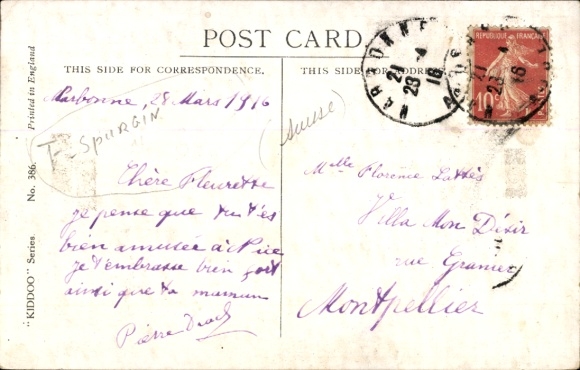 POST CARD.
THIS SIDE FOR CORRESPONDENCE.
THIS SIDE FOR ADDRESS:
Narbonne, 28 Mars 1916
F - SPURGIN
Chère Fleurette
je pense que tu t'es
bien amusée à Nice
je t'embrasse bien fort
ainsi que ta maman
Pierre
Melle Florence Lattès
Villa Mon Désir
rue Granier
Montpellier
NARBONNE
21
28
16
REPUBLIQUE FRANÇAISE
10
21
28
16
"KIDDOO" Series No. 386. Printed in England